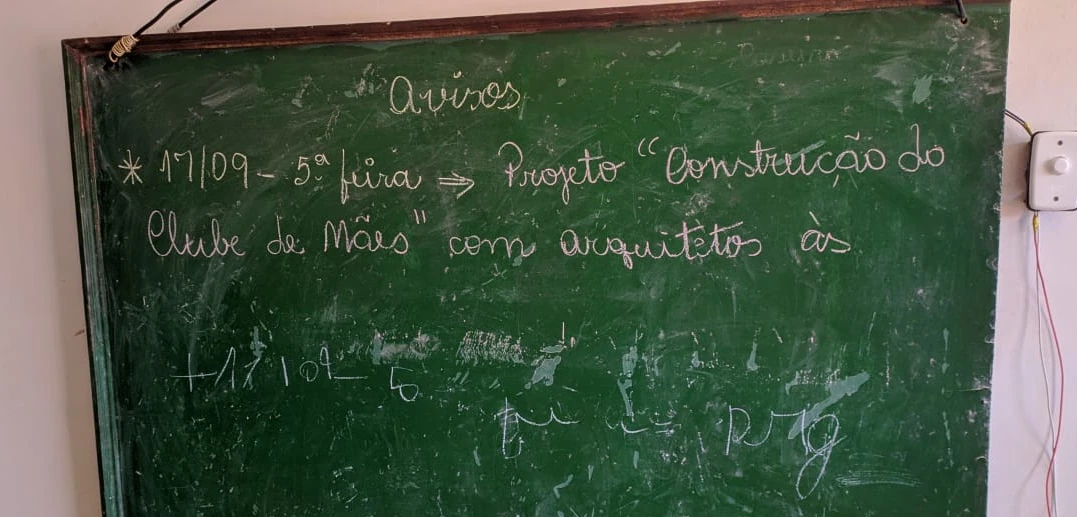 Avisos
* 17/09 - 5ª feira ⇒ Projeto "Construção do
Clube de Mães" com arquitetos às
+ 17 109 - 5